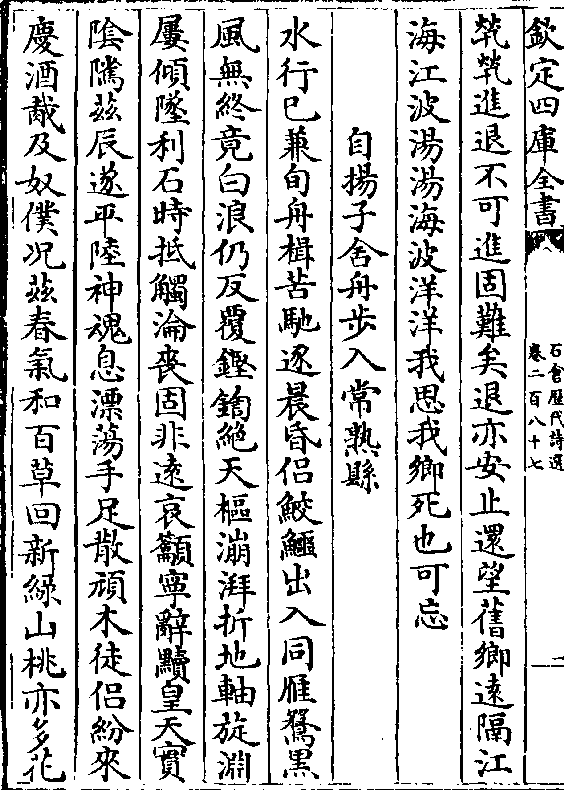 欽定四庫全書
石倉歷代詩選
卷二百八十七
煢煢進退不可進固難矣退亦安止還望舊鄉遠隔江
海江波湯湯海波洋洋我思我鄉死也可忘
自揚子舍舟步入常熟縣
水行已兼旬舟楫苦馳逐晨昏侣鮫鱷出入同雁鶩黒
風無終竟白浪仍反覆鏗鍧絶天樞漰湃折地軸旋淵
屢傾墜利石時抵觸淪喪固非遠哀籲寧辭黷皇天實
隂隲兹辰遂平陸神魂息漂蕩手足散頑木徒侣紛來
慶酒胾及奴僕况兹春氣和百草回新緑山桃亦多花